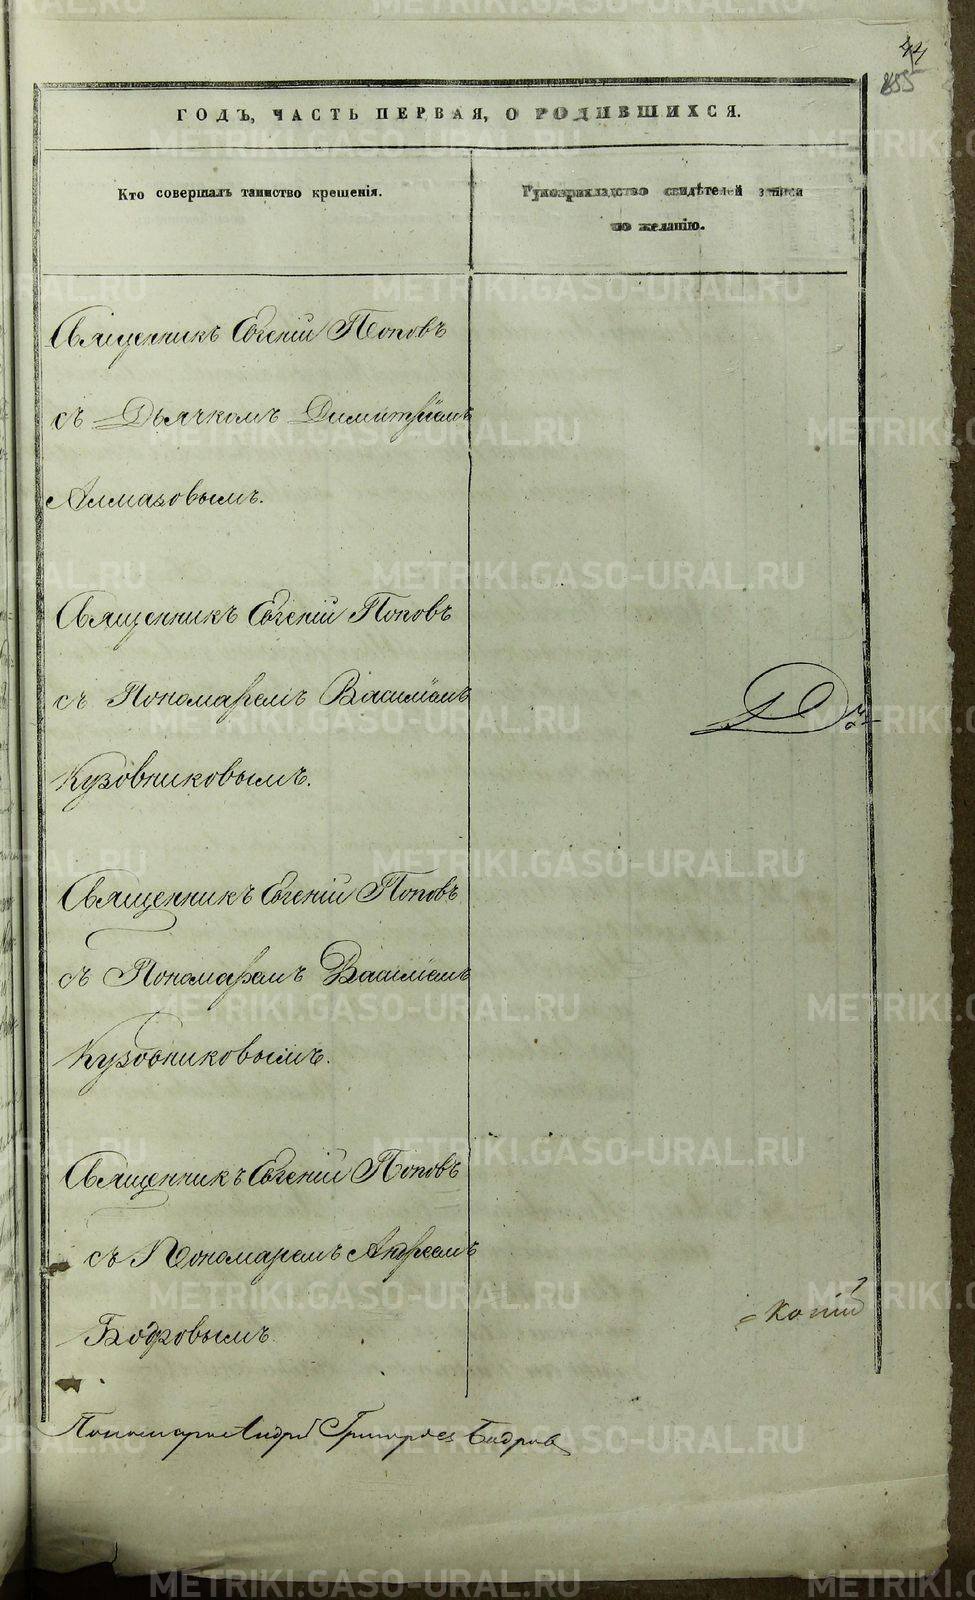 44
855
ГОДЪ, ЧАСТЬ ПЕРВАЯ, О РОДИВШИХСЯ.
Кто совершалъ таинство крещенія.
Рукоприкладство свидѣтелей записи
по желанію.
Священникъ Евгеній Поповъ
съ Дьячкомъ Димитріемъ
Алмазовымъ.
Священникъ Евгеній Поповъ
съ Пономаремъ Василіемъ
Кузовниковымъ.
Священникъ Евгеній Поповъ
съ Пономаремъ Василіемъ
Кузовниковымъ.
Священникъ Евгеній Поповъ
съ Пономаремъ Андреемъ
Бодровымъ
Пономарь Андрей Григорьев Бодров
METRIKI.GASO-URAL.RU